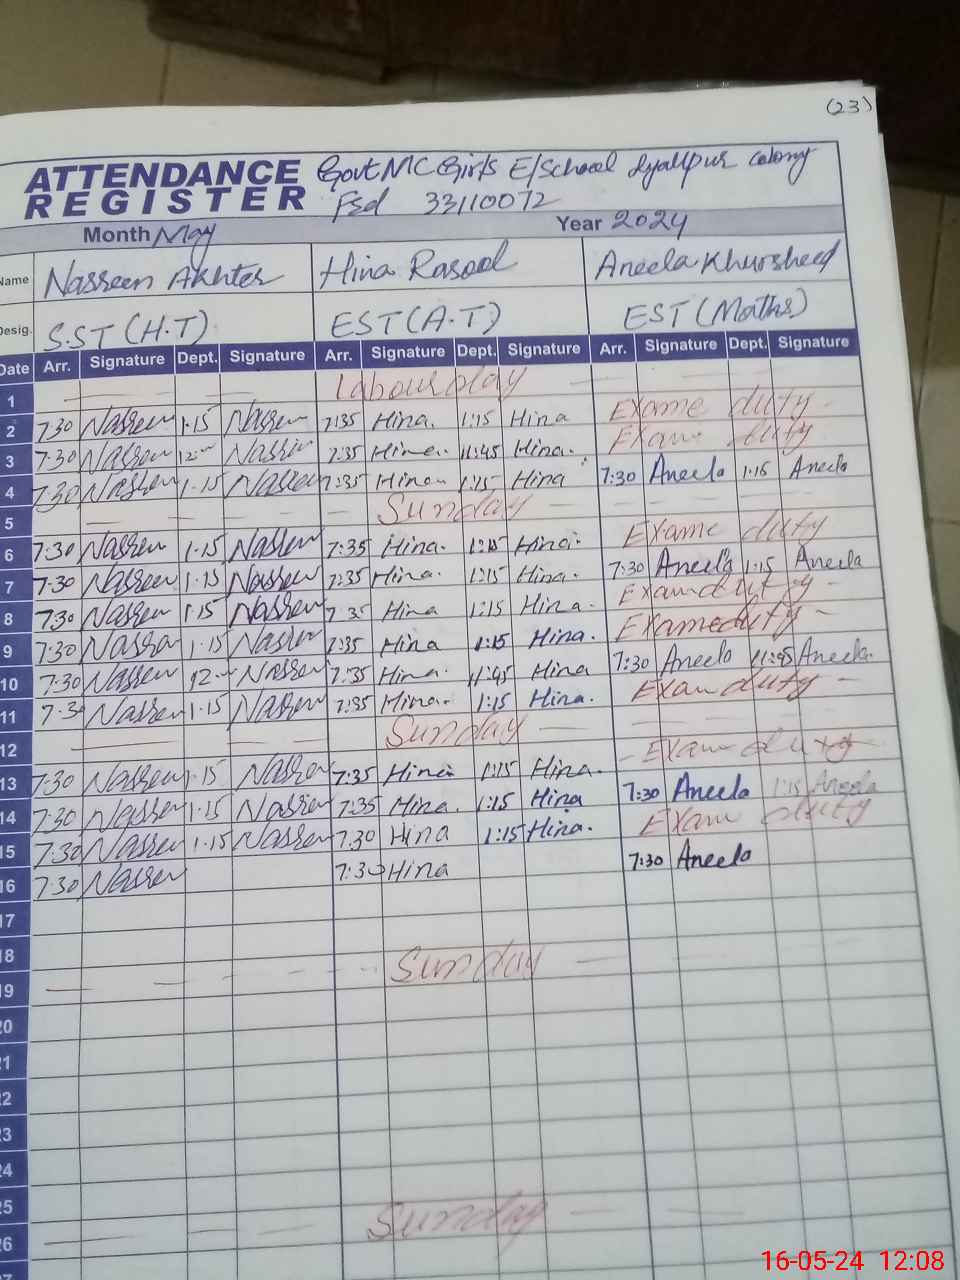 (23)
ATTENDANCE REGISTER Govt MC Girls E/School Lyallpur colony
Fsd 33110072
Month May Year 2024
Name Nasreen Akhter Hina Rasool Aneela Khursheed
Desig. S.ST (H.T) EST (A.T) EST (Maths)
Date Arr. Signature Dept. Signature Arr. Signature Dept. Signature Arr. Signature Dept. Signature
1 Labour Day
2 7:30 Nasreen 1:15 Nasreen 7:35 Hina. 1:15 Hina Exame duty
3 7:30 Nasreen 12:00 Nasreen 7:35 Hina. 11:45 Hina. Exam duty
4 7:30 Nasreen 1:15 Nasreen 7:35 Hina 1:15 Hina 7:30 Aneela 1:15 Aneela
5 Sunday
6 7:30 Nasreen 1:15 Nasreen 7:35 Hina. 1:15 Hina. Exame duty
7 7:30 Nasreen 1:15 Nasreen 7:35 Hina. 1:15 Hina. 7:30 Aneela 1:15 Aneela
8 7:30 Nasreen 1:15 Nasreen 7:35 Hina 1:15 Hina. Exam duty
9 7:30 Nasreen 1:15 Nasreen 7:35 Hina 1:15 Hina. Exame duty
10 7:30 Nasreen 12:00 Nasreen 7:35 Hina. 11:45 Hina 7:30 Aneela 11:45 Aneela.
11 7:30 Nasreen 1:15 Nasreen 7:35 Hina. 1:15 Hina. Exam duty
12 Sunday
13 7:30 Nasreen 1:15 Nasreen 7:35 Hina 1:15 Hina. Exam duty
14 7:30 Nasreen 1:15 Nasreen 7:35 Hina. 1:15 Hina 7:30 Aneela 1:15 Aneela
15 7:30 Nasreen 1:15 Nasreen 7:30 Hina 1:15 Hina. Exam duty
16 7:30 Nasreen 7:30 Hina 7:30 Aneela
17
18
19 Sunday
20
21
22
23
24
25
26 Sunday
16-05-24 12:08